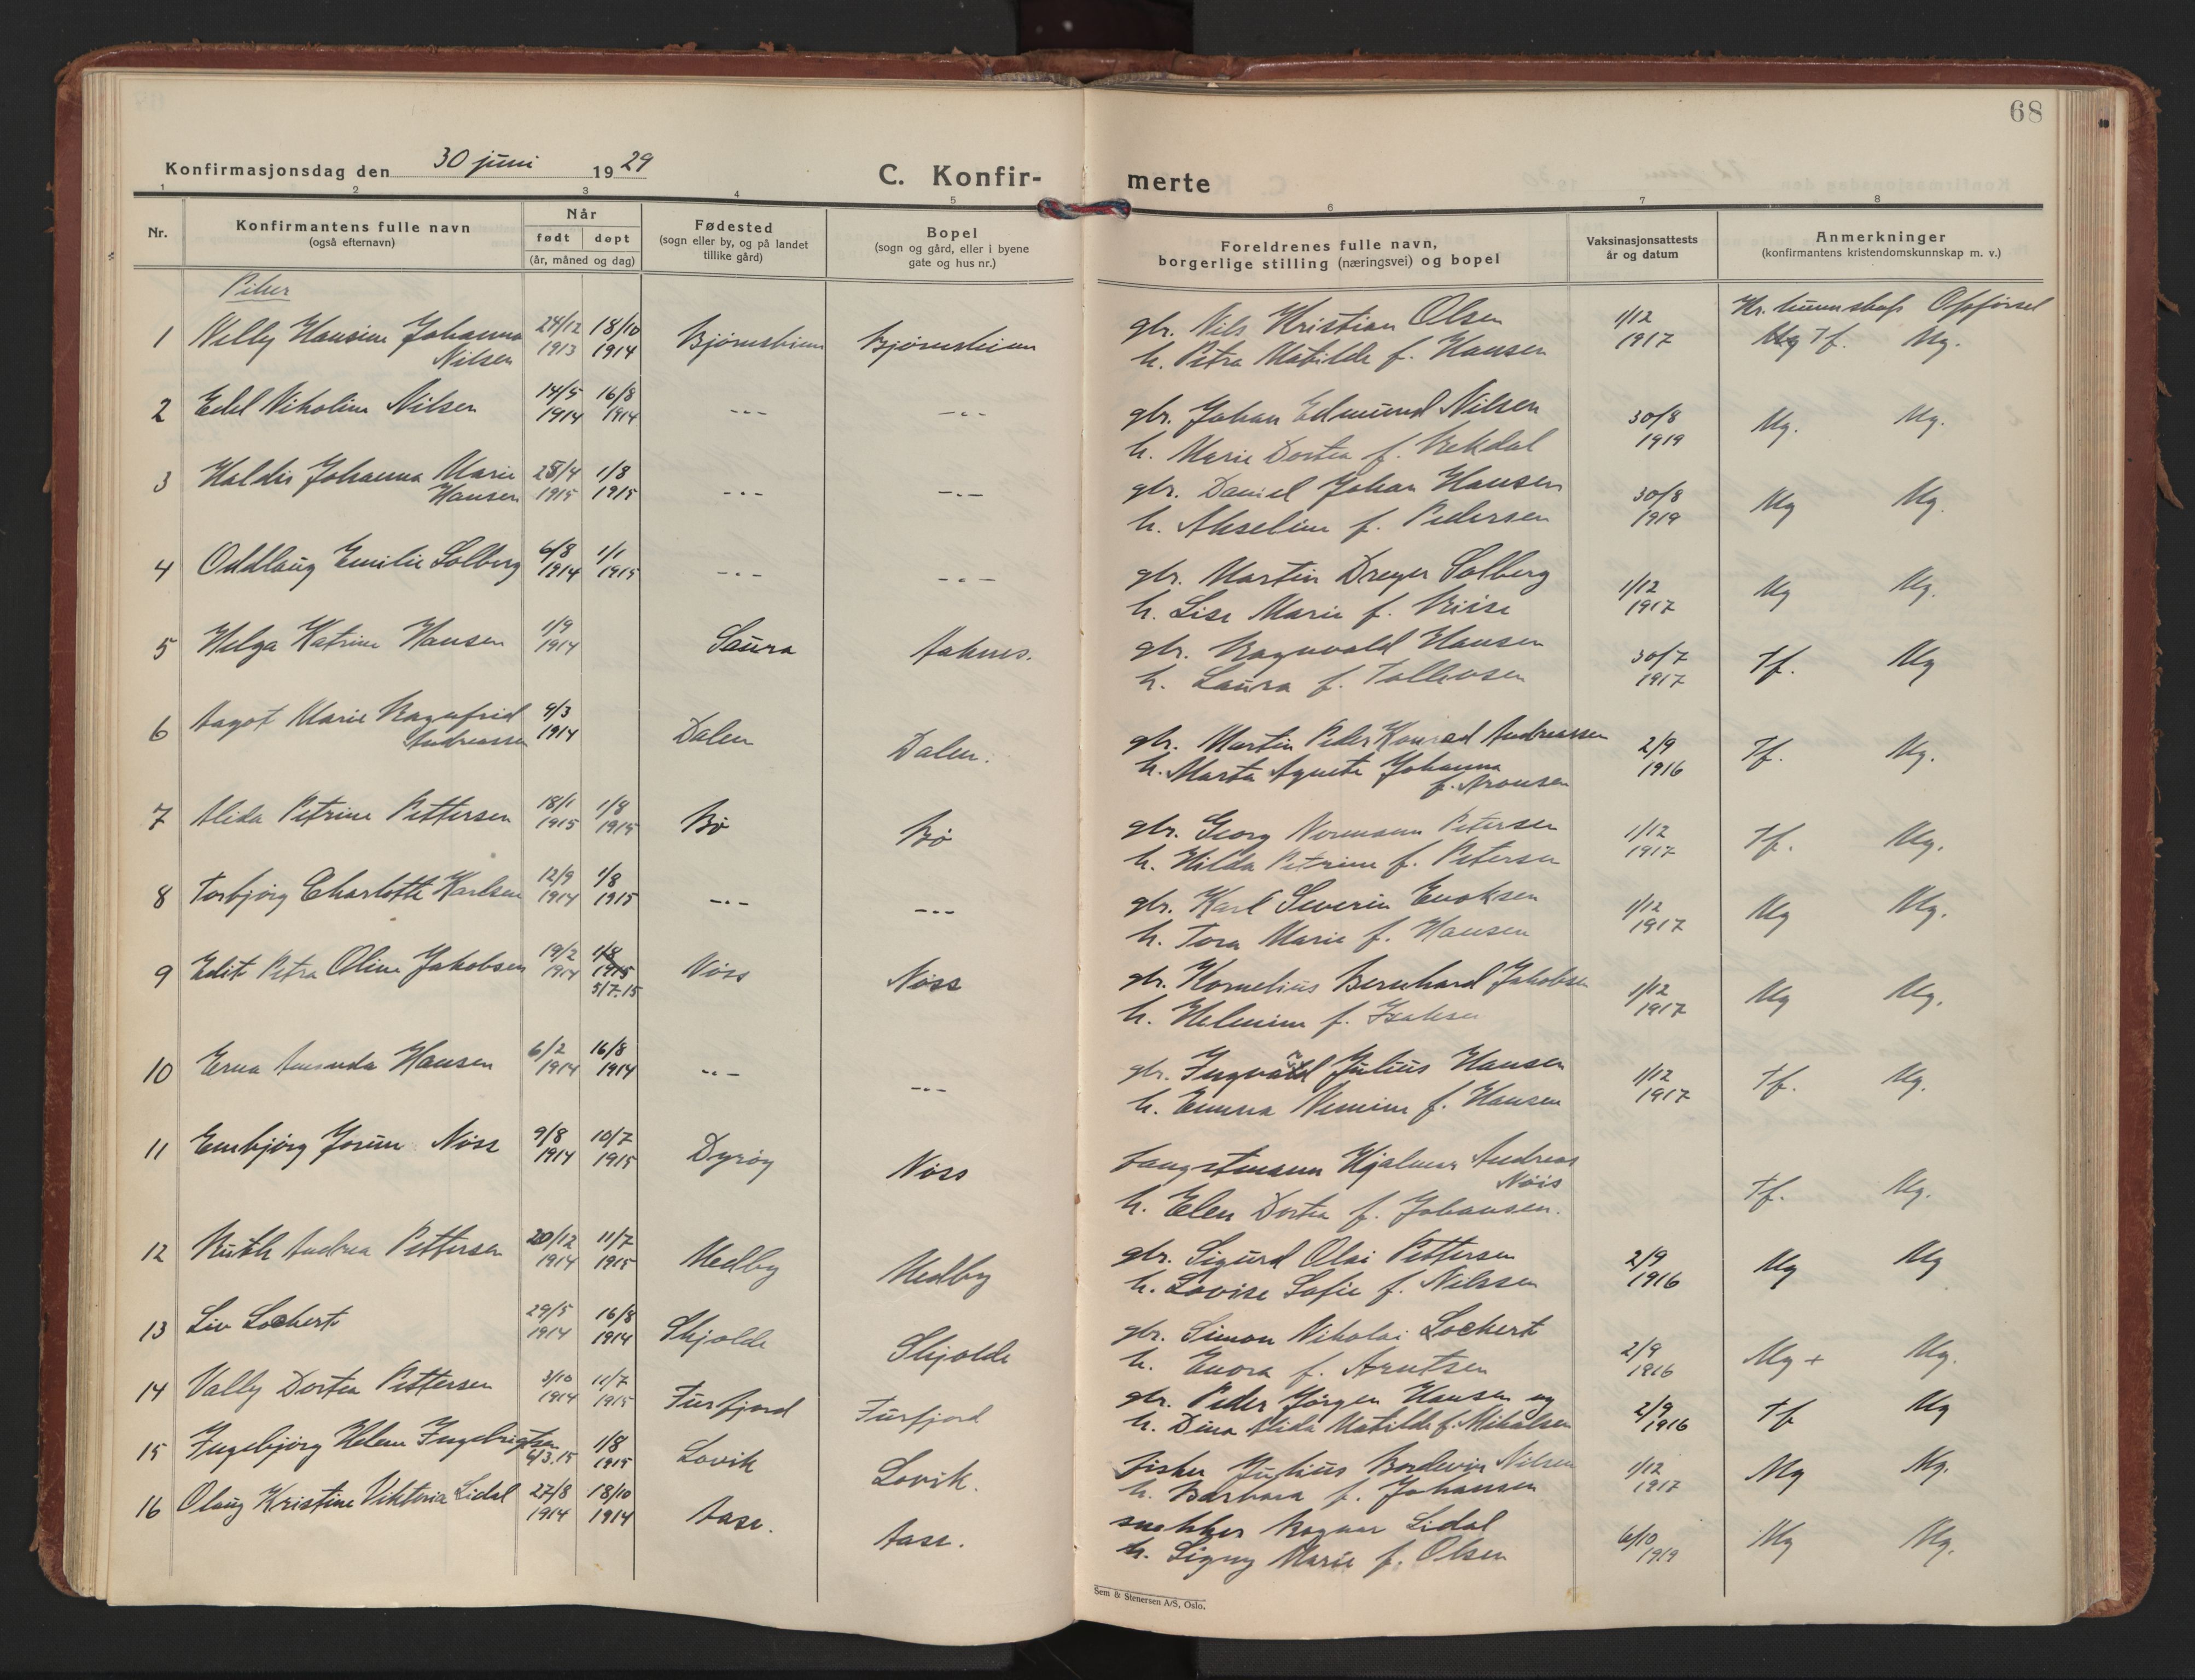 68
Konfirmasjonsdag den 30 juni 1929
C. Konfir- merte
1 2 3 4 5 6 7 8
Nr.
Konfirmantens fulle navn
(også efternavn)
Når
født døpt
(år, måned og dag)
Fødested
(sogn eller by, og på landet
tillike gård)
Bopel
(sogn og gård, eller i byene
gate og hus nr.)
Foreldrenes fulle navn,
borgerlige stilling (næringsvei) og bopel
Vaksinasjonsattests
år og datum
Anmerkninger
(konfirmantens kristendomskunnskap m. v.)
Piker
Kr. kunnskap Opførsel
1 Nelly Hansine Johanna 24/12 18/10 Bjørnsheim Bjørnsheim gbr. Nils Kristian Olsen 1/12
Nilsen 1913 1914 h. Petra Matilde f. Hansen 1917 Tf. Mg.
2 Edel Nikoline Nilsen 14/5 16/8 -.- -.- gbr. Johan Edmund Nilsen 30/8 Mg. Mg.
1914 1914 h. Marie Dortea f. Rekdal 1919
3 Haldis Johanna Marie 25/4 1/8 -.- -.- gbr. Daniel Johan Hansen 30/8 Mg Mg.
Hansen 1915 1915 h. Akseline f. Pedersen 1919
4 Oddlaug Emilie Solberg 6/8 1/1 -.- -.- gbr. Martin Dreyer Solberg 1/12 Mg Mg.
1914 1915 h. Lise Marie f. 1917
5 Helga Katrine Hansen 1/9 Saura Aaknes. gbr. Ragnvald Hansen 30/7 Tf. Mg
1914 h. Laura f. Tollevsen 1917
6 Aagot Marie Ragnfrid 4/3 Dalen Dalen. gbr. Martin Peder Konrad Andreassen 2/9 Tf. Mg.
Andreassen 1914 h. Marta Agneta Johanna 1916
f. Aronsen
7 Alida Petrine Pettersen 18/1 1/8 Bø Bø gbr. Georg Normann Petersen 1/12 Tf. Mg.
1915 1915 h. Hilda Petrine f. Petersen 1917
8 Torbjørg Charlotte Karlsen 12/9 1/8 -.- -.- gbr. Karl Severin Enoksen 1/12 Mg Mg.
1914 1915 h. Tora Marie f. Hansen 1917
9 Edit Petra Oline Jakobsen 19/2 1/8 Nøss Nøss gbr. Kornelius Bernhard Jakobsen 1/12 Mg Mg.
1914 1915 h. Helmine f. Isaksen 1917
5/7.15
10 Erna Amanda Hansen 6/2 16/8 -.- -.- gbr. Ingvald Julius Hansen 1/12 Tf. Mg.
1914 1914 h. Emma f. Hansen 1917
11 Embjørg Jorun Nøss 9/8 10/7 Dyrøy Nøss Fangstmann Hjalmar Andreas
1914 1915 Nøis Tf. Mg.
h. Elen Dortea f. Johansen.
12 Ruth Andrea Pettersen 20/12 11/7 Medby Medby gbr. Sigurd Olai Pettersen 2/9 Mg Mg
1914 1915 h. Lovise Sofie f. Nilssen 1916
13 Liv Lockert 29/5 16/8 Skjolde Skjolde gbr. Simon Nikolai Lockert 2/9 Mg + Mg.
1914 1914 h. Enora f. Arntsen 1916
14 Vally Dortea Pettersen 3/10 11/7 Furfjord Furfjord gbr. Peder Jørgen Hansen og 2/9 Tf Mg
1914 1915 h. Dina Alida Matilde f. Mikalsen 1916
15 Ingebjørg Helene Ingebrigtsen 6/3.15 1/8 Lovik Lovik. fisker Julius Bordevin Nilsen 1/12 Mg Mg.
1915 h. Barbara f. Johansen 1917
16 Olaug Kristine Viktoria Lidal 27/8 18/10 Aase. Aase. snekker Ragnar Lidal 6/10 Mg Mg.
1914 1914 h. Signy Marie f. Olsen 1919
Sem & Stenersen A/S, Oslo.